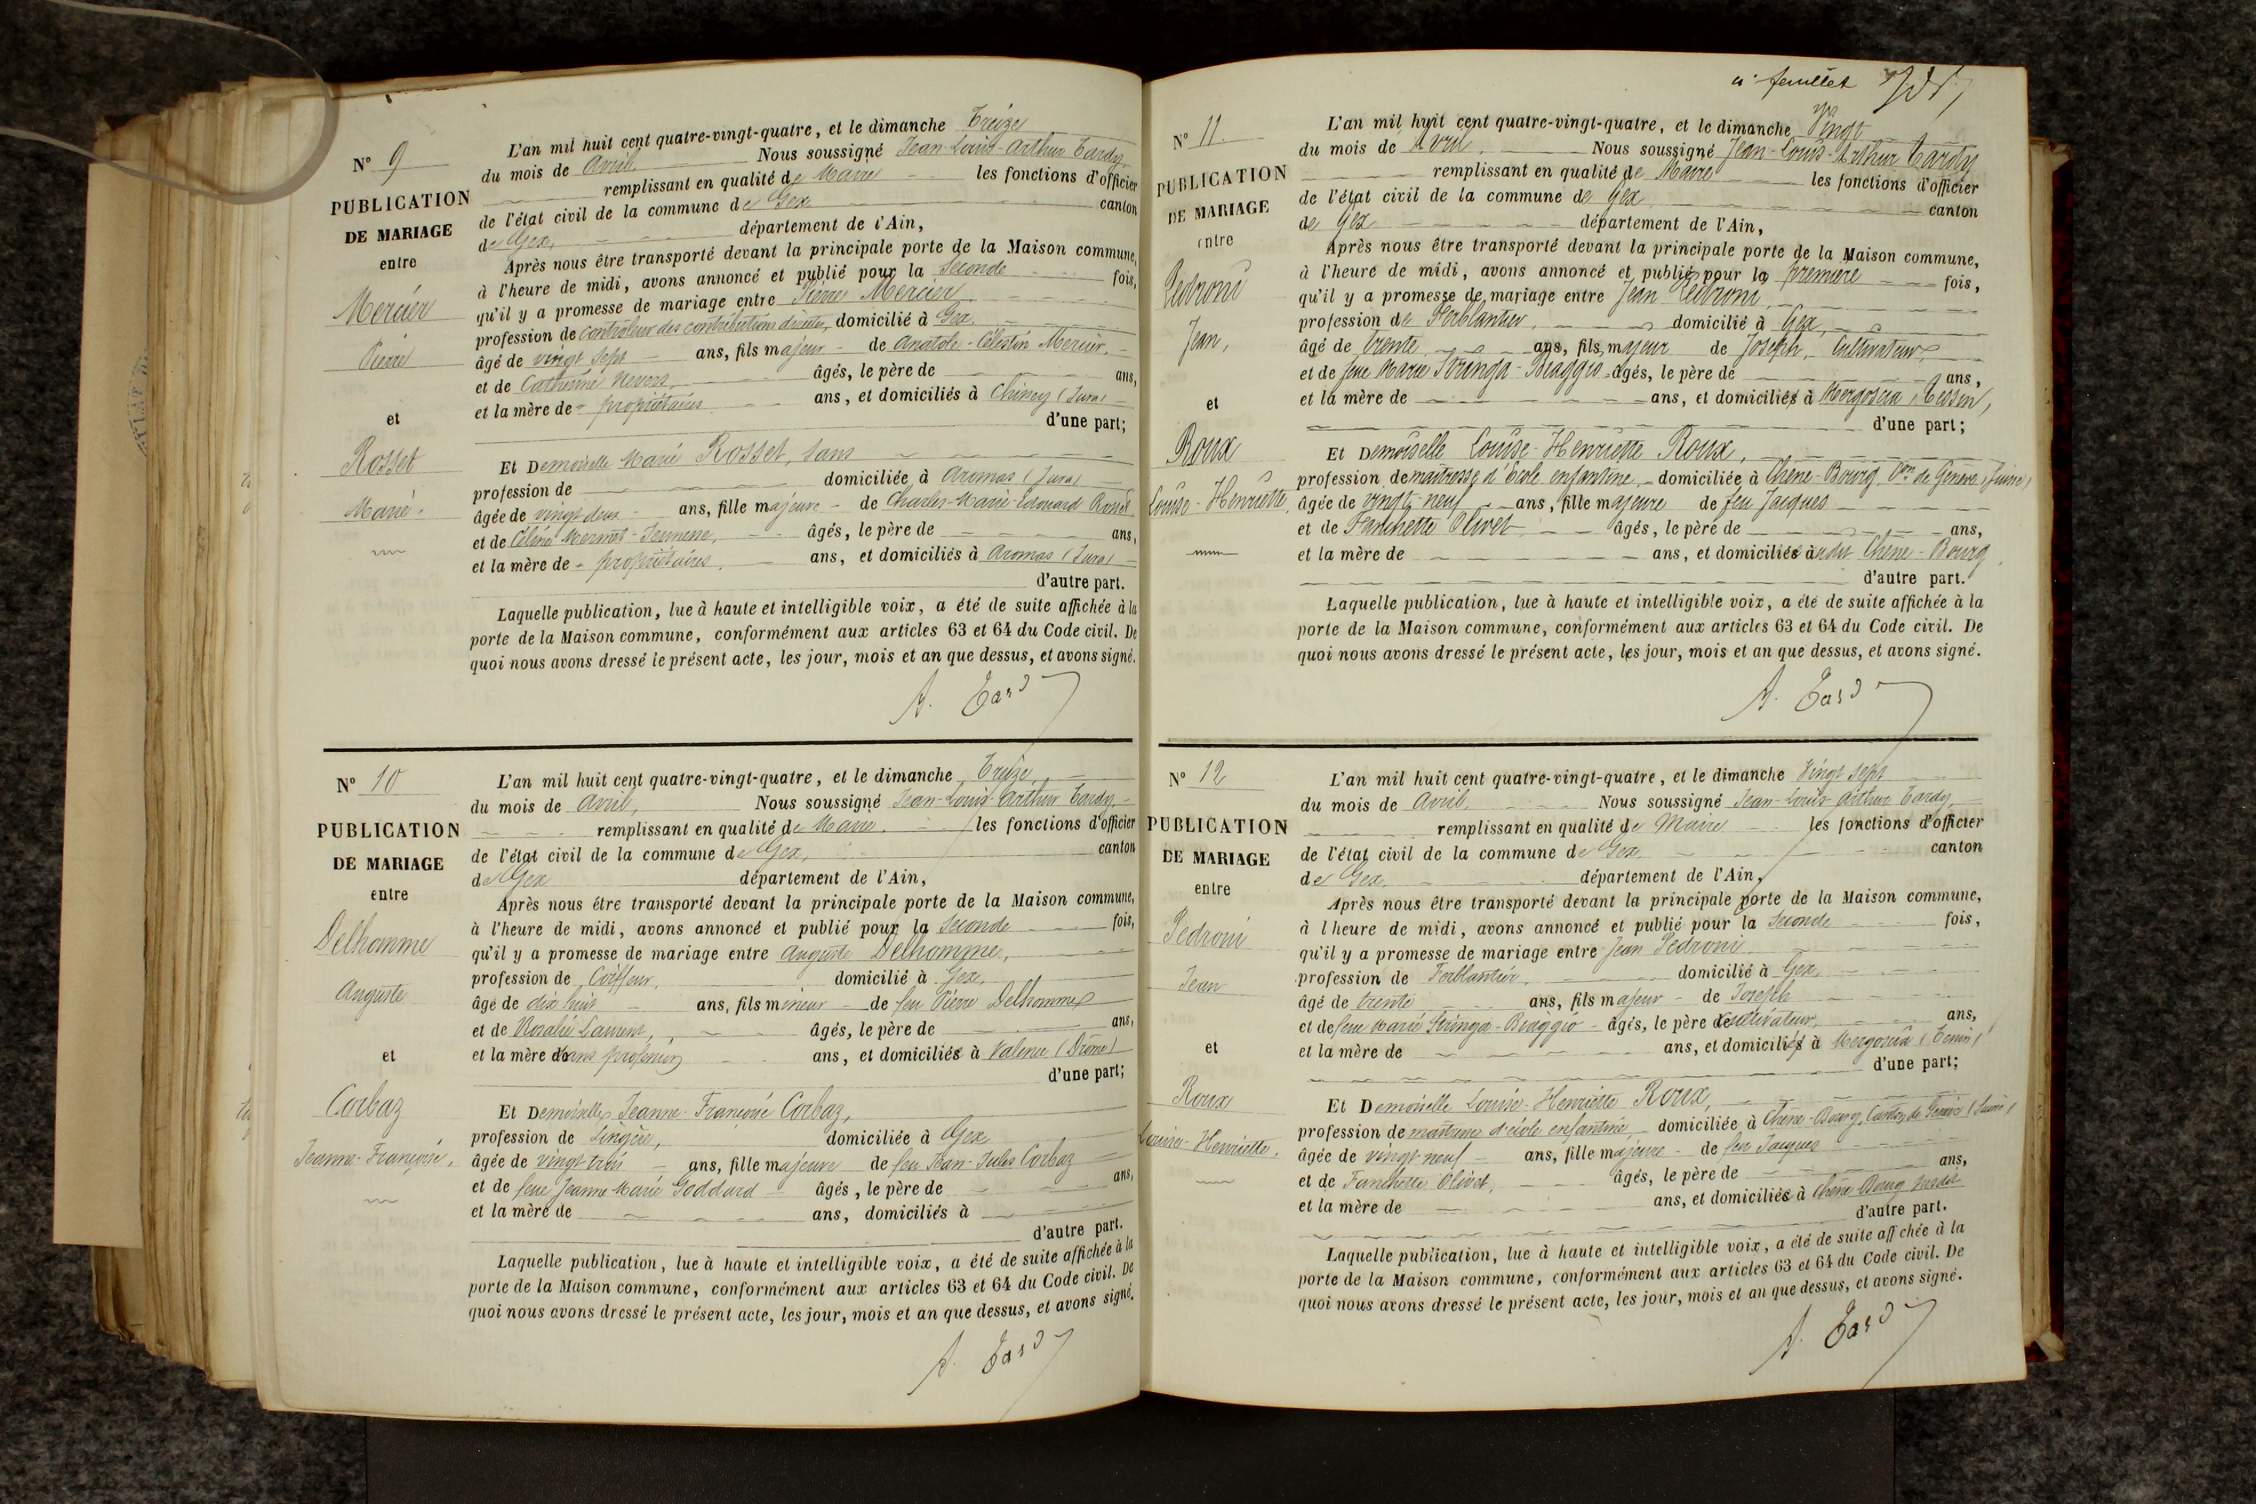 N° 9
PUBLICATION
DE MARIAGE
entre
Mercier
Pierre
et
Rosset
Marie.
L'an mil huit cent quatre-vingt-quatre, et le dimanche Treize
du mois de Avril, Nous soussigné Jean-Louis-Arthur Tardy,
remplissant en qualité de Maire les fonctions d'officier
de l'état civil de la commune de Gex canton
de Gex, département de l'Ain,
Après nous être transporté devant la principale porte de la Maison commune,
à l'heure de midi, avons annoncé et publié pour la Seconde fois,
qu'il y a promesse de mariage entre Pierre Mercier
profession de Contrôleur des contributions directes, domicilié à Gex
âgé de vingt sept ans, fils majeur de Anatole-Célestin Mercier,
et de Catherine Nevers, âgés, le père de ans,
et la mère de propriétaires ans, et domiciliés à Chisery (Jura)
d'une part;
Et Demoiselle Marie Rosset, sans
profession de domiciliée à Aromas (Jura)
âgée de vingt deux ans, fille majeure de Charles-Marie-Edouard Rosset
et de Céline Mermet-Jeunene, âgés, le père de ans,
et la mère de propriétaires, ans, et domiciliés à Aromas (Jura)
d'autre part.
Laquelle publication, lue à haute et intelligible voix, a été de suite affichée à la
porte de la Maison commune, conformément aux articles 63 et 64 du Code civil. De
quoi nous avons dressé le présent acte, les jour, mois et an que dessus, et avons signé.
A. Tardy
N° 10
PUBLICATION
DE MARIAGE
entre
Delhomme
Auguste
et
Corbaz
Jeanne-Françoise.
L'an mil huit cent quatre-vingt-quatre, et le dimanche Treize,
du mois de Avril, Nous soussigné Jean-Louis-Arthur Tardy,
remplissant en qualité de Maire. les fonctions d'officier
de l'état civil de la commune de Gex, canton
de Gex département de l'Ain,
Après nous être transporté devant la principale porte de la Maison commune,
à l'heure de midi, avons annoncé et publié pour la Seconde fois,
qu'il y a promesse de mariage entre Auguste Delhomme,
profession de Coiffeur, domicilié à Gex,
âgé de dix huit ans, fils mineur de feu Pierre Delhomme
et de Rosalie Laurent, âgés, le père de ans,
et la mère de sans profession ans, et domiciliés à Valence (Drôme)
d'une part;
Et Demoiselle Jeanne-Françoise Corbaz,
profession de Lingère, domiciliée à Gex
âgée de vingt trois ans, fille majeure de feu Jean-Jules Corbaz
et de feue Jeanne Marie Goddard âgés, le père de ans,
et la mère de ans, domiciliés à
d'autre part.
Laquelle publication, lue à haute et intelligible voix, a été de suite affichée à la
porte de la Maison commune, conformément aux articles 63 et 64 du Code civil. De
quoi nous avons dressé le présent acte, les jour, mois et an que dessus, et avons signé.
A. Tardy
feuillet
N° 11.
PUBLICATION
DE MARIAGE
entre
Pedroni
Jean,
et
Roux
Louise-Henriette.
L'an mil huit cent quatre-vingt-quatre, et le dimanche Vingt
du mois de Avril. Nous soussigné Jean-Louis-Arthur Tardy
remplissant en qualité de Maire les fonctions d'officier
de l'état civil de la commune de Gex canton
de Gex département de l'Ain,
Après nous être transporté devant la principale porte de la Maison commune,
à l'heure de midi, avons annoncé et publié pour la première fois,
qu'il y a promesse de mariage entre Jean Pedroni,
profession de Ferblantier, domicilié à Gex,
âgé de trente ans, fils majeur de Joseph, Cultivateur
et de feue Marie Stringa-Biaggio âgés, le père de ans,
et la mère de ans, et domiciliés à Mergoscia, (Tessin),
d'une part;
Et Demoiselle Louise-Henriette Roux,
profession de maîtresse d'Ecole enfantine, domiciliée à Chêne-Bourg, Con de Genève (Suisse)
âgée de vingt-neuf ans, fille majeure de feu Jacques
et de Fanchette Olivet âgés, le père de ans,
et la mère de ans, et domiciliés à Chêne-Bourg
d'autre part.
Laquelle publication, lue à haute et intelligible voix, a été de suite affichée à la
porte de la Maison commune, conformément aux articles 63 et 64 du Code civil. De
quoi nous avons dressé le présent acte, les jour, mois et an que dessus, et avons signé.
A. Tardy
N° 12
PUBLICATION
DE MARIAGE
entre
Pedroni
Jean
et
Roux
Louise-Henriette.
L'an mil huit cent quatre-vingt-quatre, et le dimanche Vingt sept
du mois de Avril, Nous soussigné Jean-Louis-Arthur Tardy,
remplissant en qualité de Maire les fonctions d'officier
de l'état civil de la commune de Gex canton
de Gex, département de l'Ain,
Après nous être transporté devant la principale porte de la Maison commune,
à l'heure de midi, avons annoncé et publié pour la Seconde fois,
qu'il y a promesse de mariage entre Jean Pedroni
profession de Ferblantier, domicilié à Gex
âgé de trente ans, fils majeur de Joseph
et de feue Marie Stringa-Biaggio âgés, le père de cultivateur, ans,
et la mère de ans, et domiciliés à Mergoscia (Tessin)
d'une part;
Et Demoiselle Louise-Henriette Roux,
profession de maîtresse d'école enfantine domiciliée à Chêne-Bourg, Canton de Genève (Suisse)
âgée de vingt-neuf ans, fille majeure de feu Jacques
et de Fanchette Olivet, âgés, le père de ans,
et la mère de ans, et domiciliés à Chêne-Bourg susdit
d'autre part.
Laquelle publication, lue à haute et intelligible voix, a été de suite affichée à la
porte de la Maison commune, conformément aux articles 63 et 64 du Code civil. De
quoi nous avons dressé le présent acte, les jour, mois et an que dessus, et avons signé.
A. Tardy